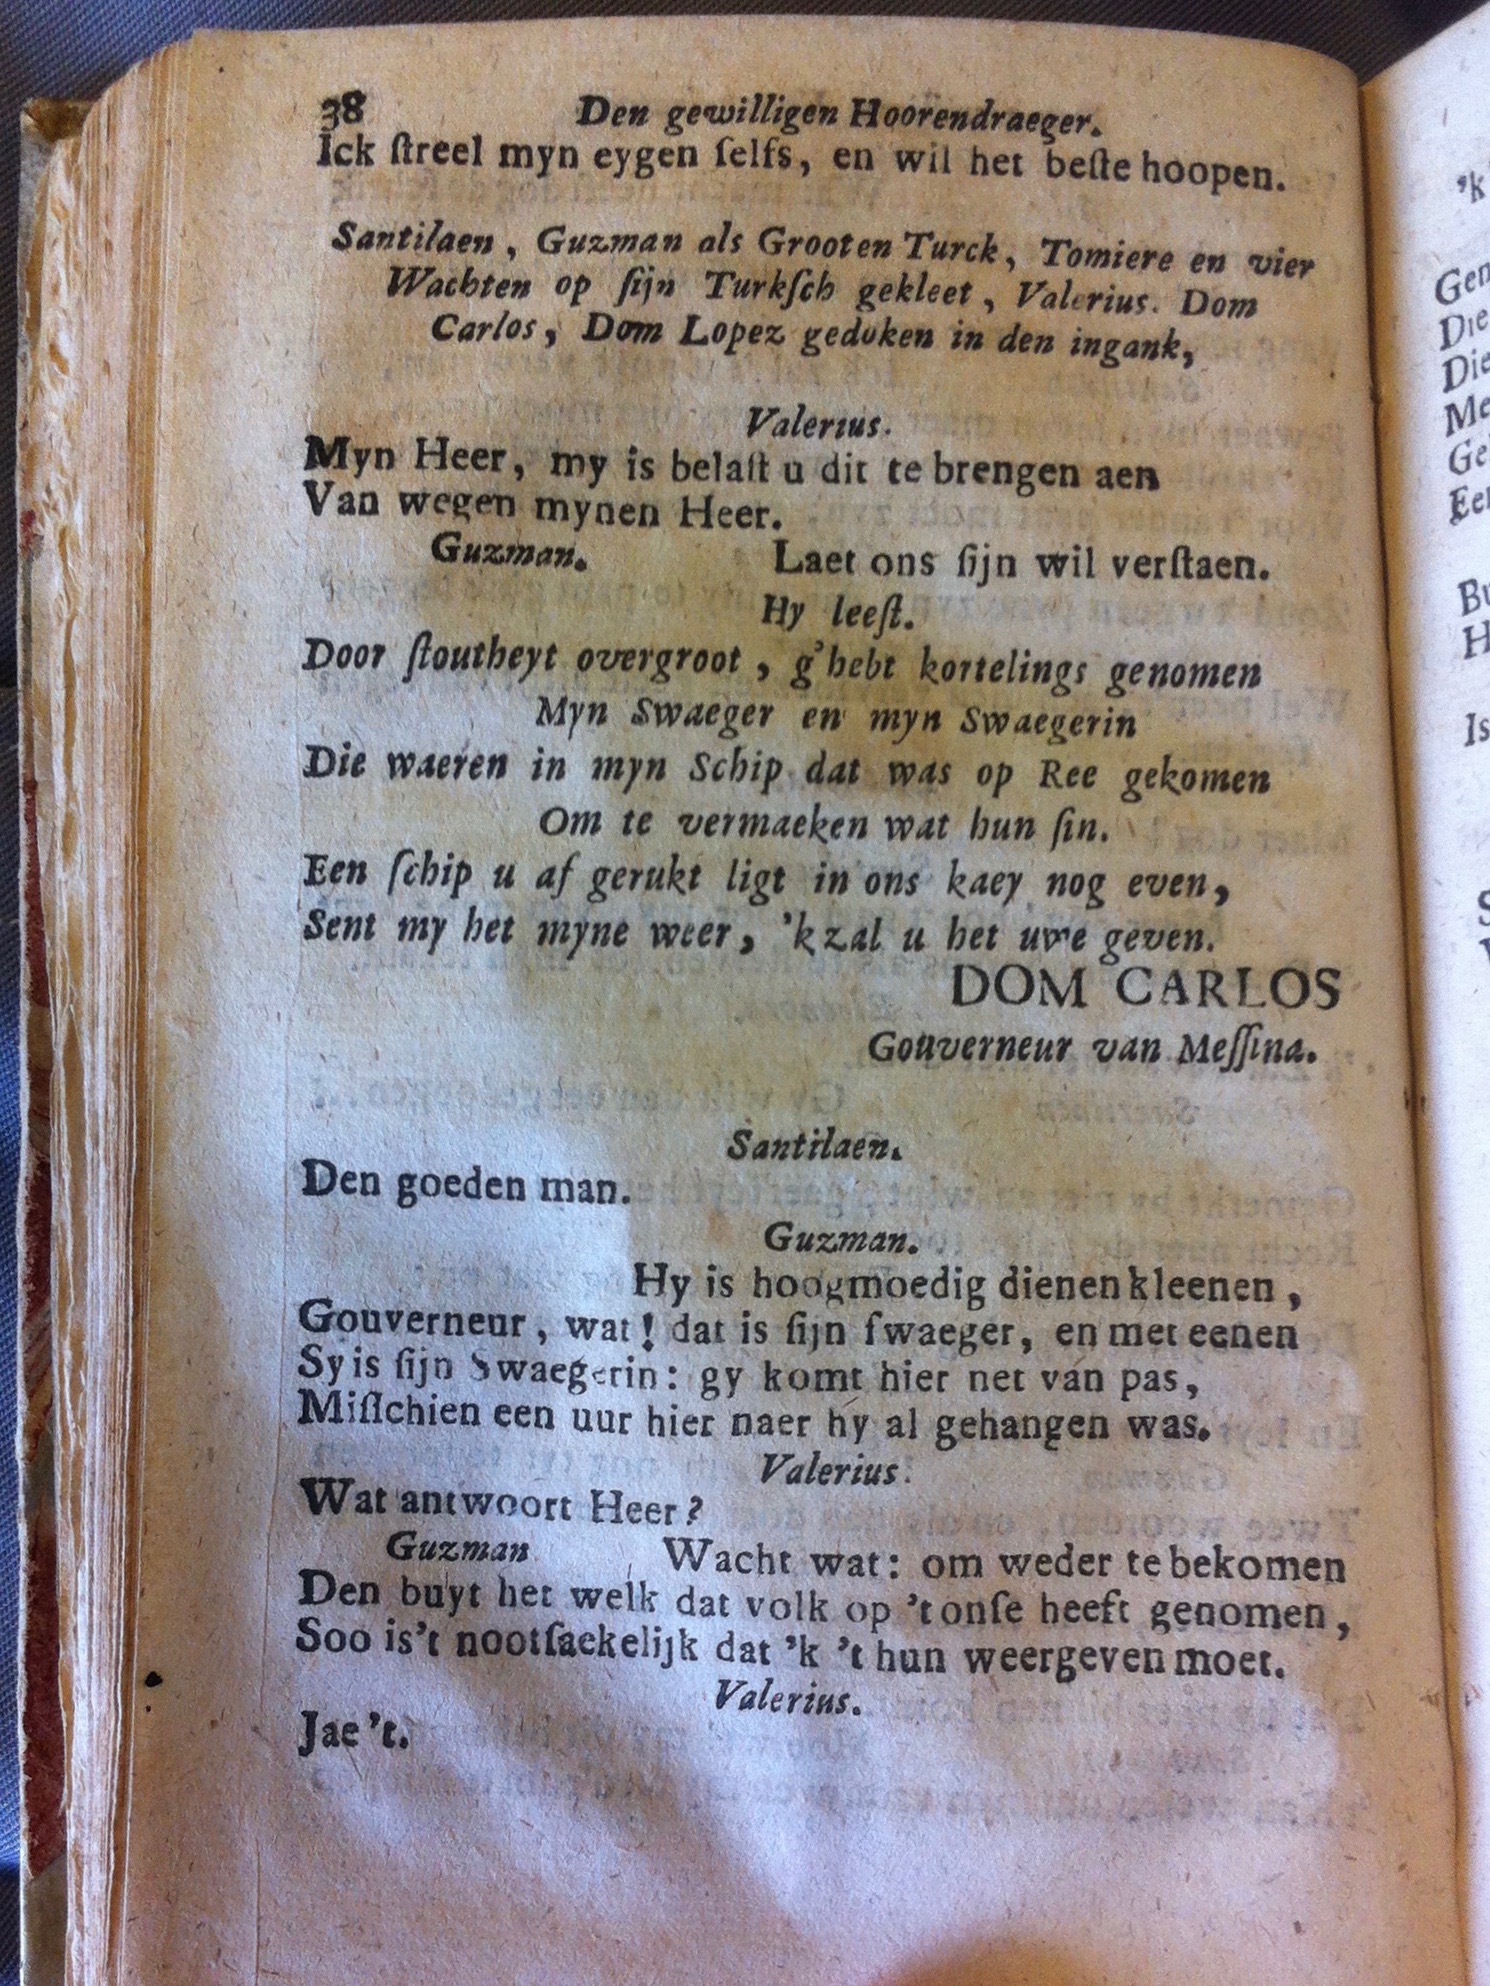 38 Den gewilligen Hoorendraeger.
Ick ſtreel myn eygen ſelfs, en wil het beſte hoopen.
Santilaen, Guzman als Grooten Turck, Tomiere en vier
Wachten op ſijn Turkſch gekleet, Valerius. Dom
Carlos, Dom Lopez gedoken in den ingank,
Valerius.
Myn Heer, my is belaſt u dit te brengen aen
Van wegen mynen Heer.
Guzman. Laet ons ſijn wil verſtaen.
Hy leeſt.
Door ſtoutheyt overgroot, g'hebt kortelings genomen
Myn Swaeger en myn Swaegerin
Die waeren in myn Schip dat was op Ree gekomen
Om te vermaeken wat hun ſin.
Een ſchip u af gerukt ligt in ons kaey nog even,
Sent my het myne weer, 'k zal u het uwe geven.
DOM CARLOS
Gouverneur van Meſſina.
Santilaen.
Den goeden man.
Guzman.
Hy is hoogmoedig dienen kleenen,
Gouverneur, wat! dat is ſijn ſwaeger, en met eenen
Sy is ſijn Swaegerin: gy komt hier net van pas,
Miſſchien een uur hier naer hy al gehangen was.
Valerius.
Wat antwoort Heer?
Guzman Wacht wat: om weder te bekomen
Den buyt het welk dat volk op 't onſe heeft genomen,
Soo is't nootſaekelijk dat 'k 't hun weergeven moet.
Valerius.
Jae 't.
'k
Gen
Die
Die
Me
Ge
Een
Bu
H
Is
S